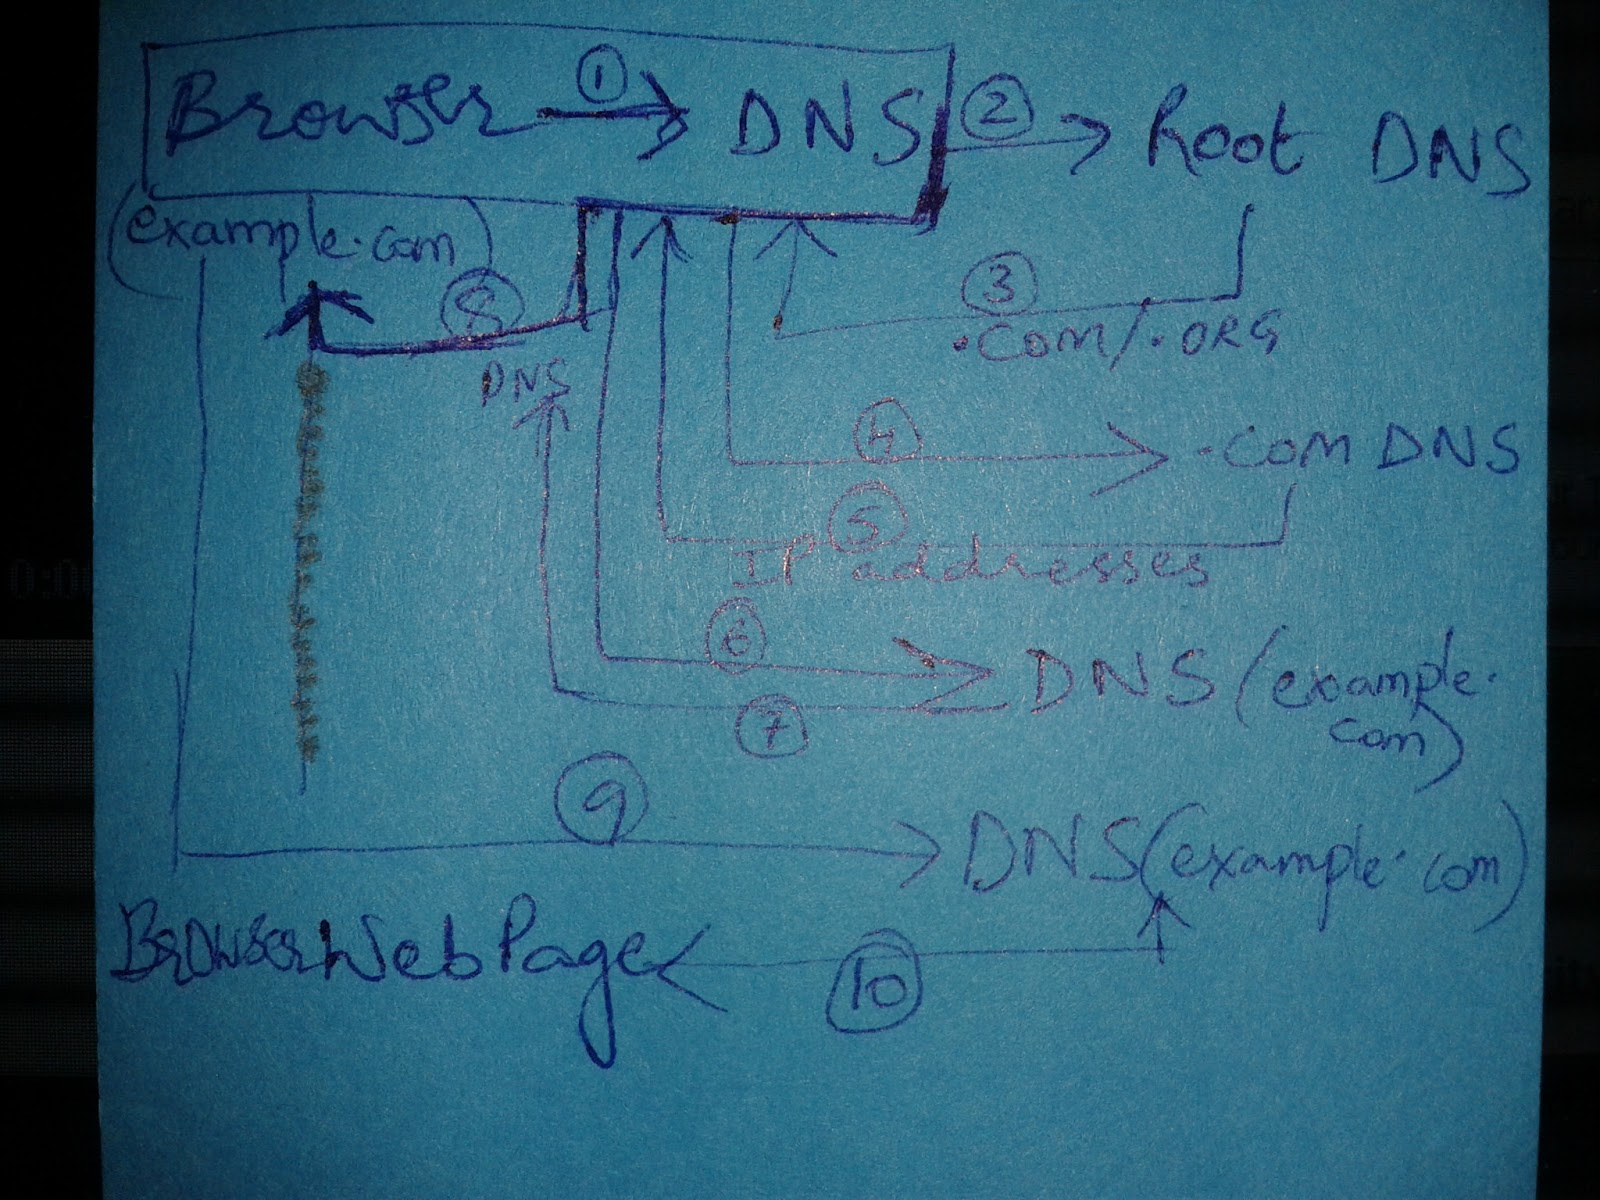 Browser ① DNS ② Root DNS
(example.com)
⑧ ③
.COM/.ORG
DNS
④ .COM DNS
⑤
IP addresses
⑥ DNS (example.
com)
⑦
⑨
DNS (example.com)
Browser Web Page
⑩